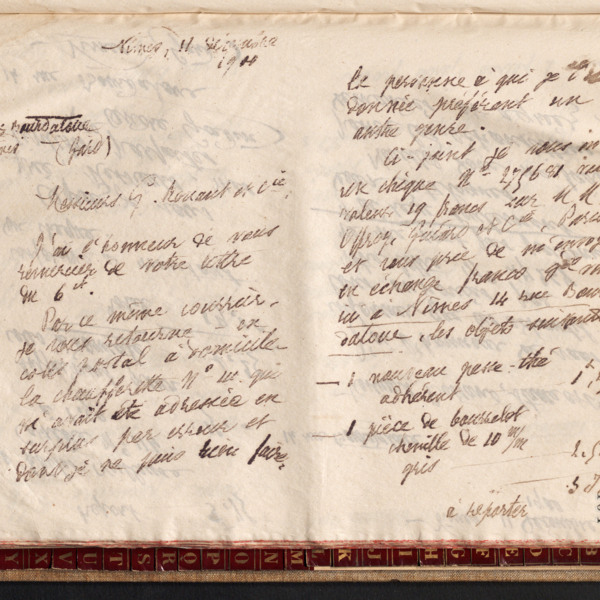 Nîmes, 11 Décembre
1900
Bourdaloue
(Gard)
Messieurs G. Rouart et Cie,
J'ai l'honneur de vous
remercier de votre lettre
du 6 ct.
Par ce même courrier,
je vous retourne en
colis postal à domicile
la chaufferette No 10 qui
m'avait été adressée en
surplus par erreur et
dont je ne puis rien faire,
la personne à qui je l'ai
donnée préférant un
autre genre.
Ci-joint je vous in
un chèque No
valeur 19 francs sur M M
Offroy, Guiard et Cie, Paris
et vous prie de m'envoy
en échange franco
à Nîmes 14 rue Bour
daloue, les objets suivants
— 1 nouveau passe-thé
adhérent
— 1 pièce de bourrelet
chenille de 10 m/m
gris
à reporter
X V U T S R Q P O N M L K J I H G F E D C B